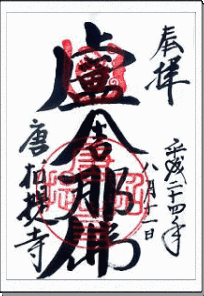 奉拝
平成二十四年
八月十二日
盧舎那佛
唐招提寺